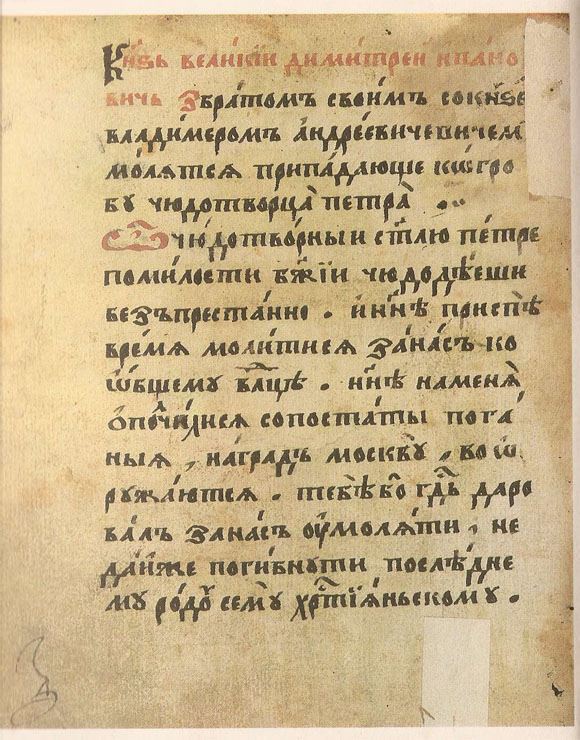 Кнѧзь вели́кїи дими́трей ивано
вичь з̾братомъ свои́мъ со кнѧзе
влади́меромъ а҆ндре́евичевичем
мо́лѧтсѧ припа́дающе ко гро
бу чюдотворца̀ петра̀ .
Ѽ чю́дотво́рныи ст҃лю пе́тре
поми́лости бж҃їи чюдодѣ́еши
безъпреста́нно . и нн҃ѣ приспѣ̀
времѧ моли́тисѧ зана́съ ко
ѻ҆́бщему влⷣцѣ . нн҃ѣ наменѧ̀
ѻ҆полчи́лисѧ сопоста́ты пога́
ныѧ , награ́дъ москву̀ , во ѡ
ружа́ютсѧ . тебѣ́ бо гдⷭь даро
ва́лъ зана́съ оу҆моля́ти , не
да́йже поги́бнути послѣ́дне
му ро́ду сему̀ хрⷭтїѧ́ньскому .